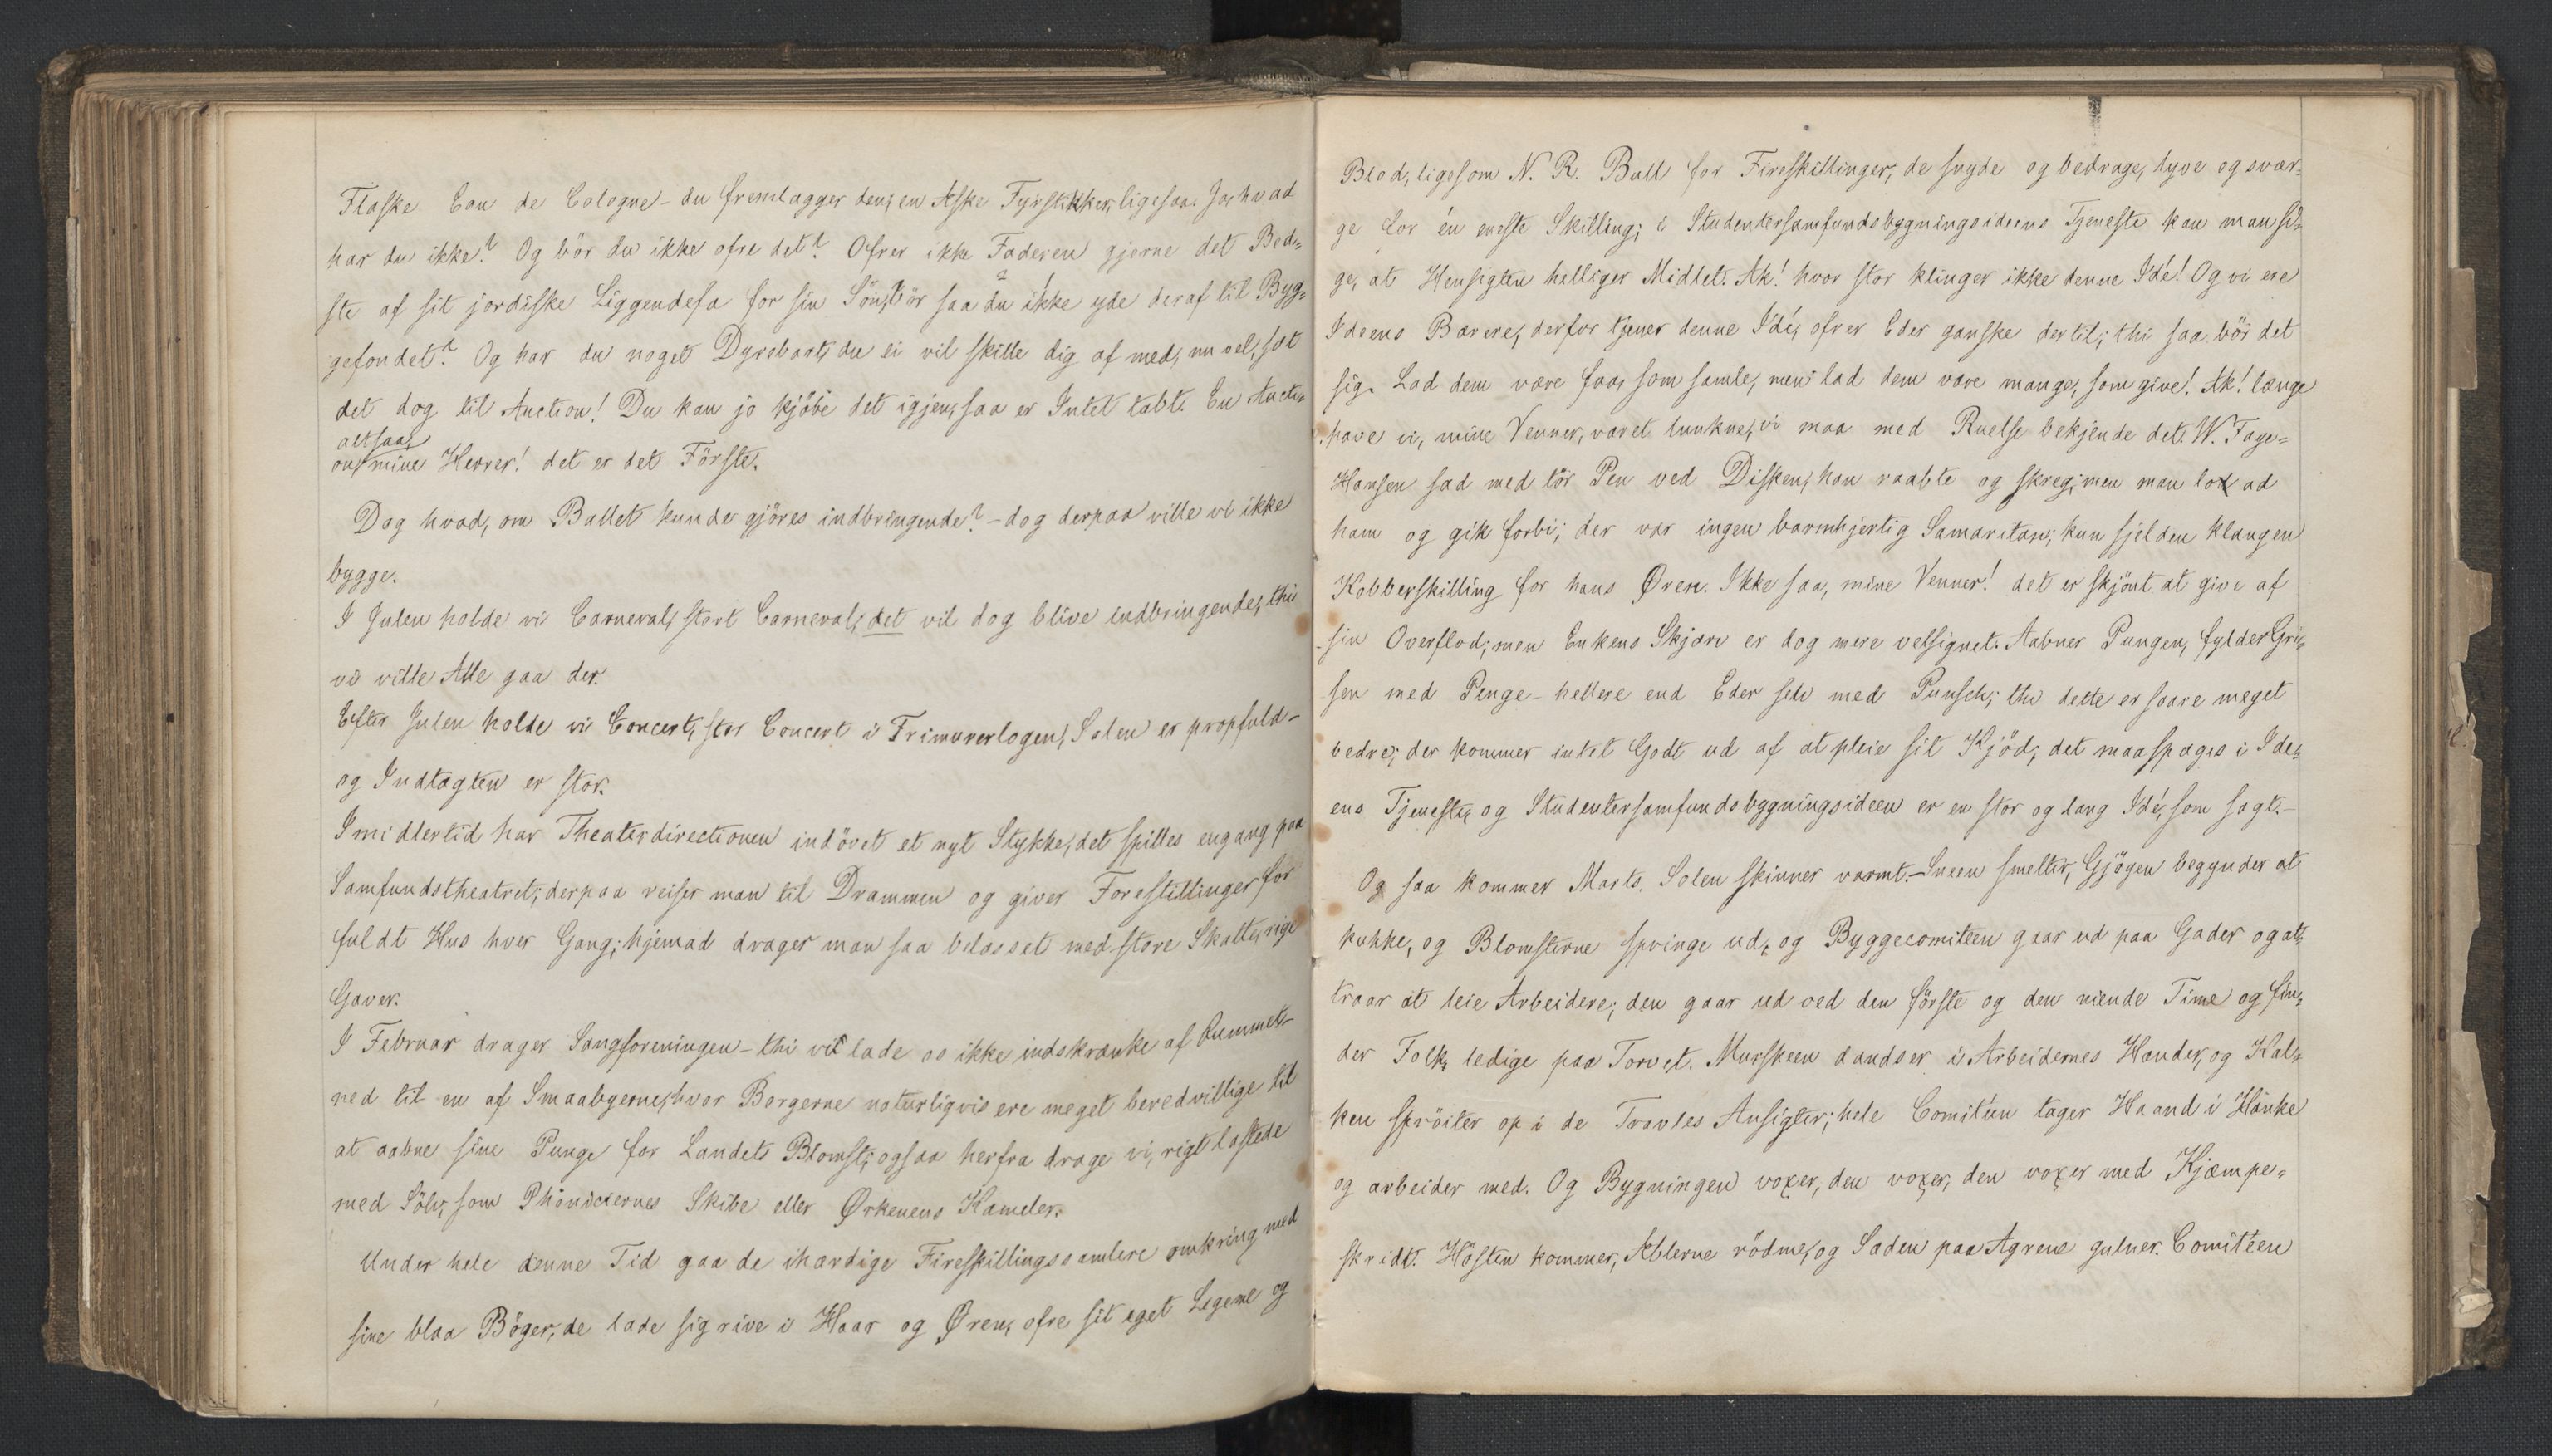 Flaske Eau de Cologne – du fremlægger den; en Æske Fyrstikker, ligesaa. Ja, hvad
har du ikke? Og bör du ikke ofre det? Ofrer ikke Faderen gjerne det Bed-
ste af sit jordiske Liggendefæ for sin Sön, bör saa du ikke yde deraf til Byg-
gefondet? Og har du noget Dyrebart, du ei vil skille dig af med, nu vel, sæt
det dog til Auction! Du kan jo kjöbe det igjen, saa er Intet tabt. En Aucti-
altsaa,
on, mine Herrer! det er det Förste.
Dog hvad, om Ballet kunde gjöres indbringende? – dog derpaa ville vi ikke
bygge.
I Julen holde vi Carneval, stort Carneval, det vil dog blive indbringende, thi
vi ville Alle gaa der.
Efter Julen holde vi Concert, stor Concert i Frimurerlogen, Salen er propfuld –
og Indtægten er stor.
Imidlertid har Theaterdirectionen indövet et nyt Stykke, det spilles engang paa
Samfundstheatret; derpaa reiser man til Drammen og giver Forestillinger for
fuldt Hus hver Gang; hjemad drager man saa belæsset med store Skatte, rige
Gaver.
I Februar drager Sangforeningen – thi vi lade os ikke indskrænke af Rummet –
ned til en af Smaabyerne, hvor Borgerne naturligvis ere meget beredvillige til
at aabne sine Punge for Landets Blomst; ogsaa herfra drage vi, rigt lastede
med Sölv, som Phöniciernes Skibe eller Ørkenens Kameler.
Under hele denne Tid gaa de ihærdige Fireskillingssamlere omkring med
sine blaa Böger, de lade sig rive i Haar og Øren, ofre sit eget Legeme og
Blod, ligesom N. R. Bull for Fireskillinger, de snyde og bedrage, lyve og svær-
ge for én eneste Skilling; i Studentersamfundsbygningsideens Tjeneste kan man si-
ge, at Hensigten helliger Midlet. Ak! hvor stor klinger ikke denne Idé! Og vi ere
Ideens Bærere, derfor tjener denne Idé, ofrer Eder ganske dertil; thi saa bör det
sig. Lad dem være faa, som samle, men lad dem være mange, som give! Ak! længe
have vi, mine Venner, været lunkne, vi maa med Ruelse bekjende det. W. Faye-
Hansen sad med tör Pen ved Disken, han raabte og skreg; men man lo ad
ham og gik forbi; der var ingen barmhjertig Samaritan; kun sjelden klang en
Kobberskilling for hans Øren. Ikke saa, mine Venner! det er skjönt at give af
sin Overflod; men Enkens Skjærv er dog mere velsignet. Aabner Pungen, fylder Gri-
sen med Penge – hellere end Eder selv med Punsch; thi dette er saare meget
bedre; der kommer intet Godt ud af at pleie sit Kjöd; det maa spæges i Ide-
ens Tjeneste, og Studentersamfundsbygningsideen er en stor og lang Idé, som sagt. –
Og saa kommer Marts. Solen skinner varmt. – Sneen smelter, Gjögen begynder at
kukke, og Blomsterne springe ud, og Byggecomiteen gaar ud paa Gader og at-
traar at leie Arbeidere; den gaar ud ved den förste og den niende Time og fin-
der Folk, ledige paa Torvet. Murskeen dandser i Arbeidernes Hænder, og Kal-
ken spröiter op i de Travles Ansigter; hele Comitéen tager Haand i Hanke
og arbeider med. Og Bygningen voxer, den voxer, den voxer med Kjæmpe-
skridt. Hösten kommer, Æblerne rödme, og Sæden paa Agrene gulner. Comitéen